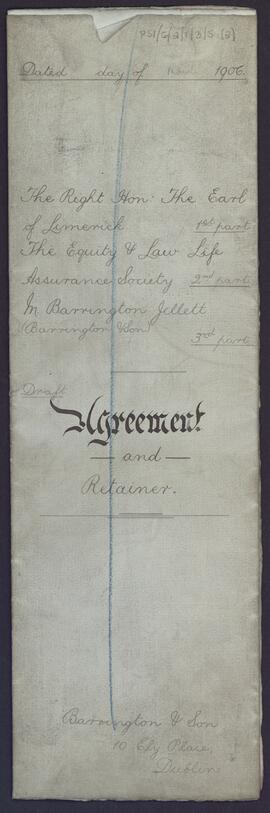 PS1/6/2/1/3/5 (2)
Dated day of 1906.
The Right Hon: The Earl
of Limerick 1st part
The Equity & Law Life
Assurance Society 2nd part
M Barrington Jellett
(Barrington & Son) 3rd part
Draft
Agreement
— and —
Retainer.
Barrington & Son
10 Ely Place,
Dublin